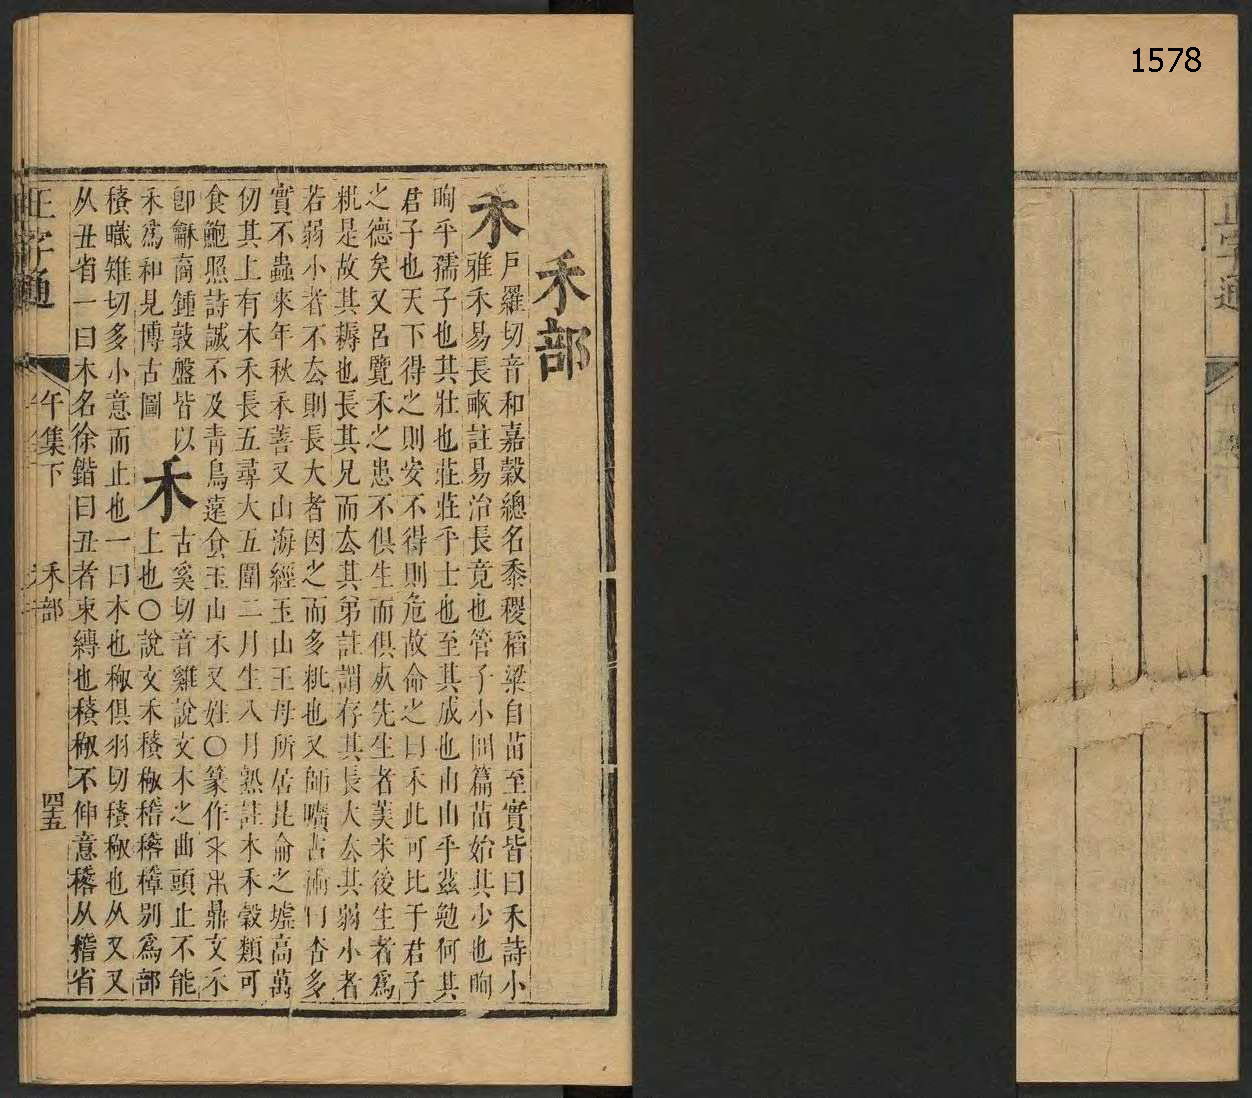 1578
禾部
禾
戸羅切音和嘉穀總名黍稷稻粱自苗至實皆曰禾詩小
雅禾易長畞註易治長竟也管子小問篇苗始其少也眴
眴乎孺子也其壯也莊莊乎士也至其成也由由乎茲勉何其
君子也天下得之則安不得則危故命之曰禾此可比于君子
之德矣又呂覽禾之患不俱生而俱死先生者美米後生者爲
粃是故其耨也長其兄而去其弟註謂存其長大去其弱小者
若弱小者不去則長大者因之而多粃也又師曠占術曰杏多
實不蟲來年秋禾善又山海經玉山王母所居昆侖之墟高萬
仞其上有木禾長五尋大五圍二月生八月熟註木禾穀類可
食鮑照詩誠不及青鳥遠食玉山禾又姓〇篆作鼎文禾
卽龢商鍾敦盤皆以
禾爲和見博古圖
禾
古奚切音雞說文木之曲頭止不能
上也〇說文禾𥡴䅩稽𥡜穕別爲部
𥡴職雉切多小意而止也一曰木也䅩俱羽切𥡴䅩也从又又
从丑省一曰木名徐鍇曰丑者束縛也𥡴䅩不伸意𥡜从稽省
正字通
午集下
禾部
四十五
正字通